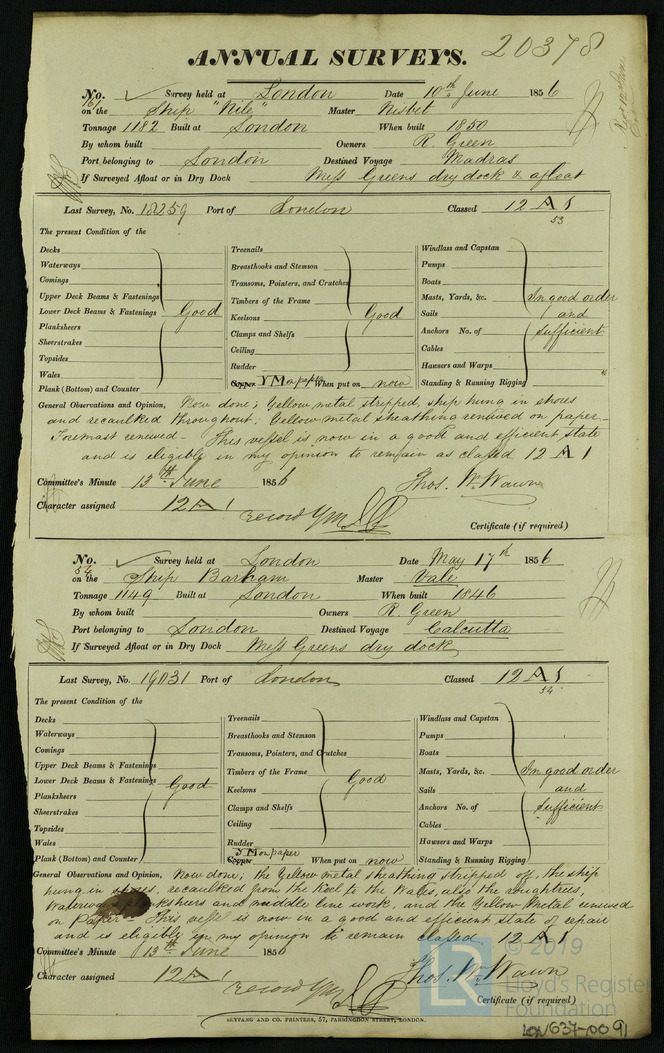 ANNUAL SURVEYS. 20378
No. 161 Survey held at London Date 10th June 1856
on the Ship "Nile" Master Nisbet
Tonnage 1182 Built at London When built 1850
By whom built Owners R. Green
Port belonging to London Destined Voyage Madras
If Surveyed Afloat or in Dry Dock Messrs Greens dry dock & afloat
Last Survey, No. 18259 Port of London Classed 12 A 1
53
The present Condition of the
Decks Treenails Windlass and Capstan
Waterways Breasthooks and Stemson Pumps
Comings Transoms, Pointers, and Crutches Boats
Upper Deck Beams & Fastenings Timbers of the Frame Masts, Yards, &c. In good order
Lower Deck Beams & Fastenings Good Keelsons Good Sails and
Planksheers Clamps and Shelfs Anchors No. of sufficient
Sheerstrakes Ceiling Cables
Topsides Rudder Hawsers and Warps
Wales Copper Y M on paper When put on now Standing & Running Rigging
Plank (Bottom) and Counter
General Observations and Opinion, Now done; Yellow metal stripped, ship hung in shores
and recaulked throughout; Yellow metal sheathing renewed on paper -
Foremast renewed - This vessel is now in a good and efficient state
and is eligible in my opinion to remain as classed 12 A 1
Committee's Minute 13th June 1856 Thos. Wm Wawn
Character assigned 12 A 1
record YM
Certificate (if required)
No. 54 Survey held at London Date May 17th 1856
on the Ship Barham Master Vale
Tonnage 1149 Built at London When built 1846
By whom built Owners R. Green
Port belonging to London Destined Voyage Calcutta
If Surveyed Afloat or in Dry Dock Messrs Greens dry dock
Last Survey, No. 19031 Port of London Classed 12 A 1
54
The present Condition of the
Decks Treenails Windlass and Capstan
Waterways Breasthooks and Stemson Pumps
Comings Transoms, Pointers, and Crutches Boats
Upper Deck Beams & Fastenings Timbers of the Frame Masts, Yards, &c. In good order
Lower Deck Beams & Fastenings Good Keelsons Good Sails and
Planksheers Clamps and Shelfs Anchors No. of sufficient
Sheerstrakes Ceiling Cables
Topsides Rudder Hawsers and Warps
Wales Copper Y M on paper When put on now Standing & Running Rigging
Plank (Bottom) and Counter
General Observations and Opinion, Now done; the Yellow metal sheathing stripped off, the ship
hung in shores, recaulked from the Keel to the Wales, also the roughtrees,
Waterways planksheers and middle line work, and the Yellow Metal renewed
on Paper - This vessel is now in a good and efficient state of repair
and is eligible in my opinion to remain classed 12 A 1
Committee's Minute 13th June 1856
Character assigned 12 A 1 Thos. Wm Wawn
record YM
Certificate (if required)
SEYFANG AND CO. PRINTERS, 57, FARRINGDON STREET, LONDON.
© 2019
LR Lloyd's Register
Foundation
LON637-0091